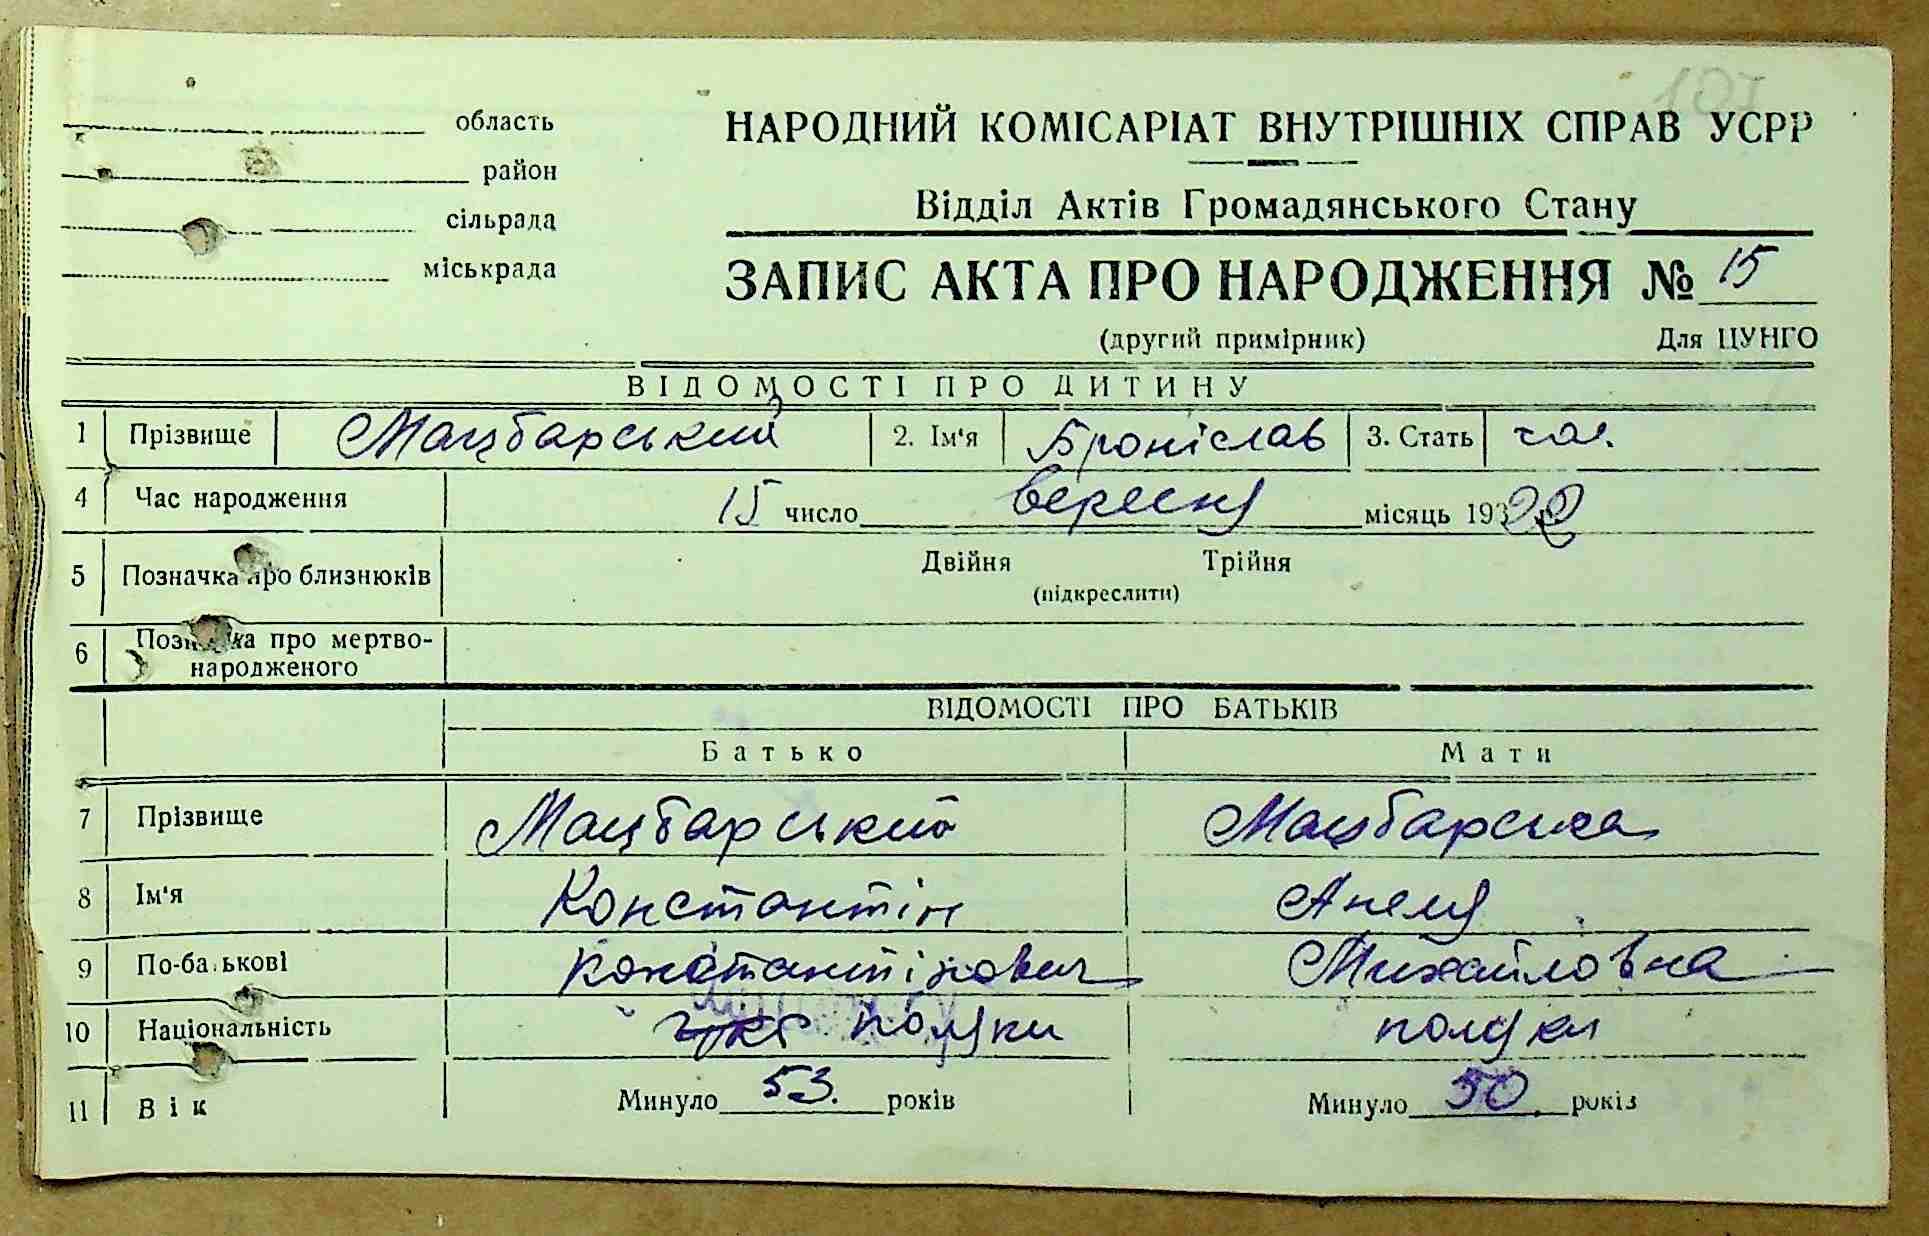 область
район
сільрада
міськрада
НАРОДНИЙ КОМІСАРІАТ ВНУТРІШНІХ СПРАВ УСРР
Відділ Актів Громадянського Стану
ЗАПИС АКТА ПРО НАРОДЖЕННЯ № 15
(другий примірник) Для ЦУНГО
ВІДОМОСТІ ПРО ДИТИНУ
1 Прізвище Мацбарський 2. Ім'я Броніслав 3. Стать чол.
4 Час народження 15 число вересня місяць 1922
5 Позначка про близнюків Двійня Трійня
(підкреслити)
6 Позначка про мертво-
народженого
ВІДОМОСТІ ПРО БАТЬКІВ
Батько Мати
7 Прізвище Мацбарський Мацбарська
8 Ім'я Константін Анеля
9 По-батькові Константінович Михайловна
10 Національність поляки поляки
11 Вік Минуло 53. років Минуло 50 років